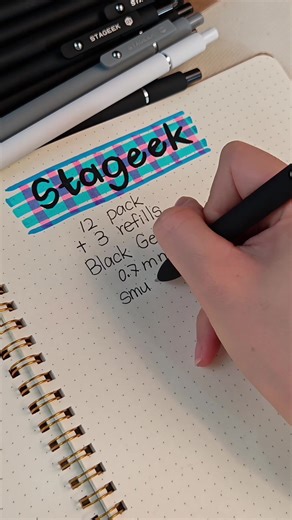 STAGEEK
Stageek
12 pack
+ 3 refills
Black Ge
0.7 m
smu